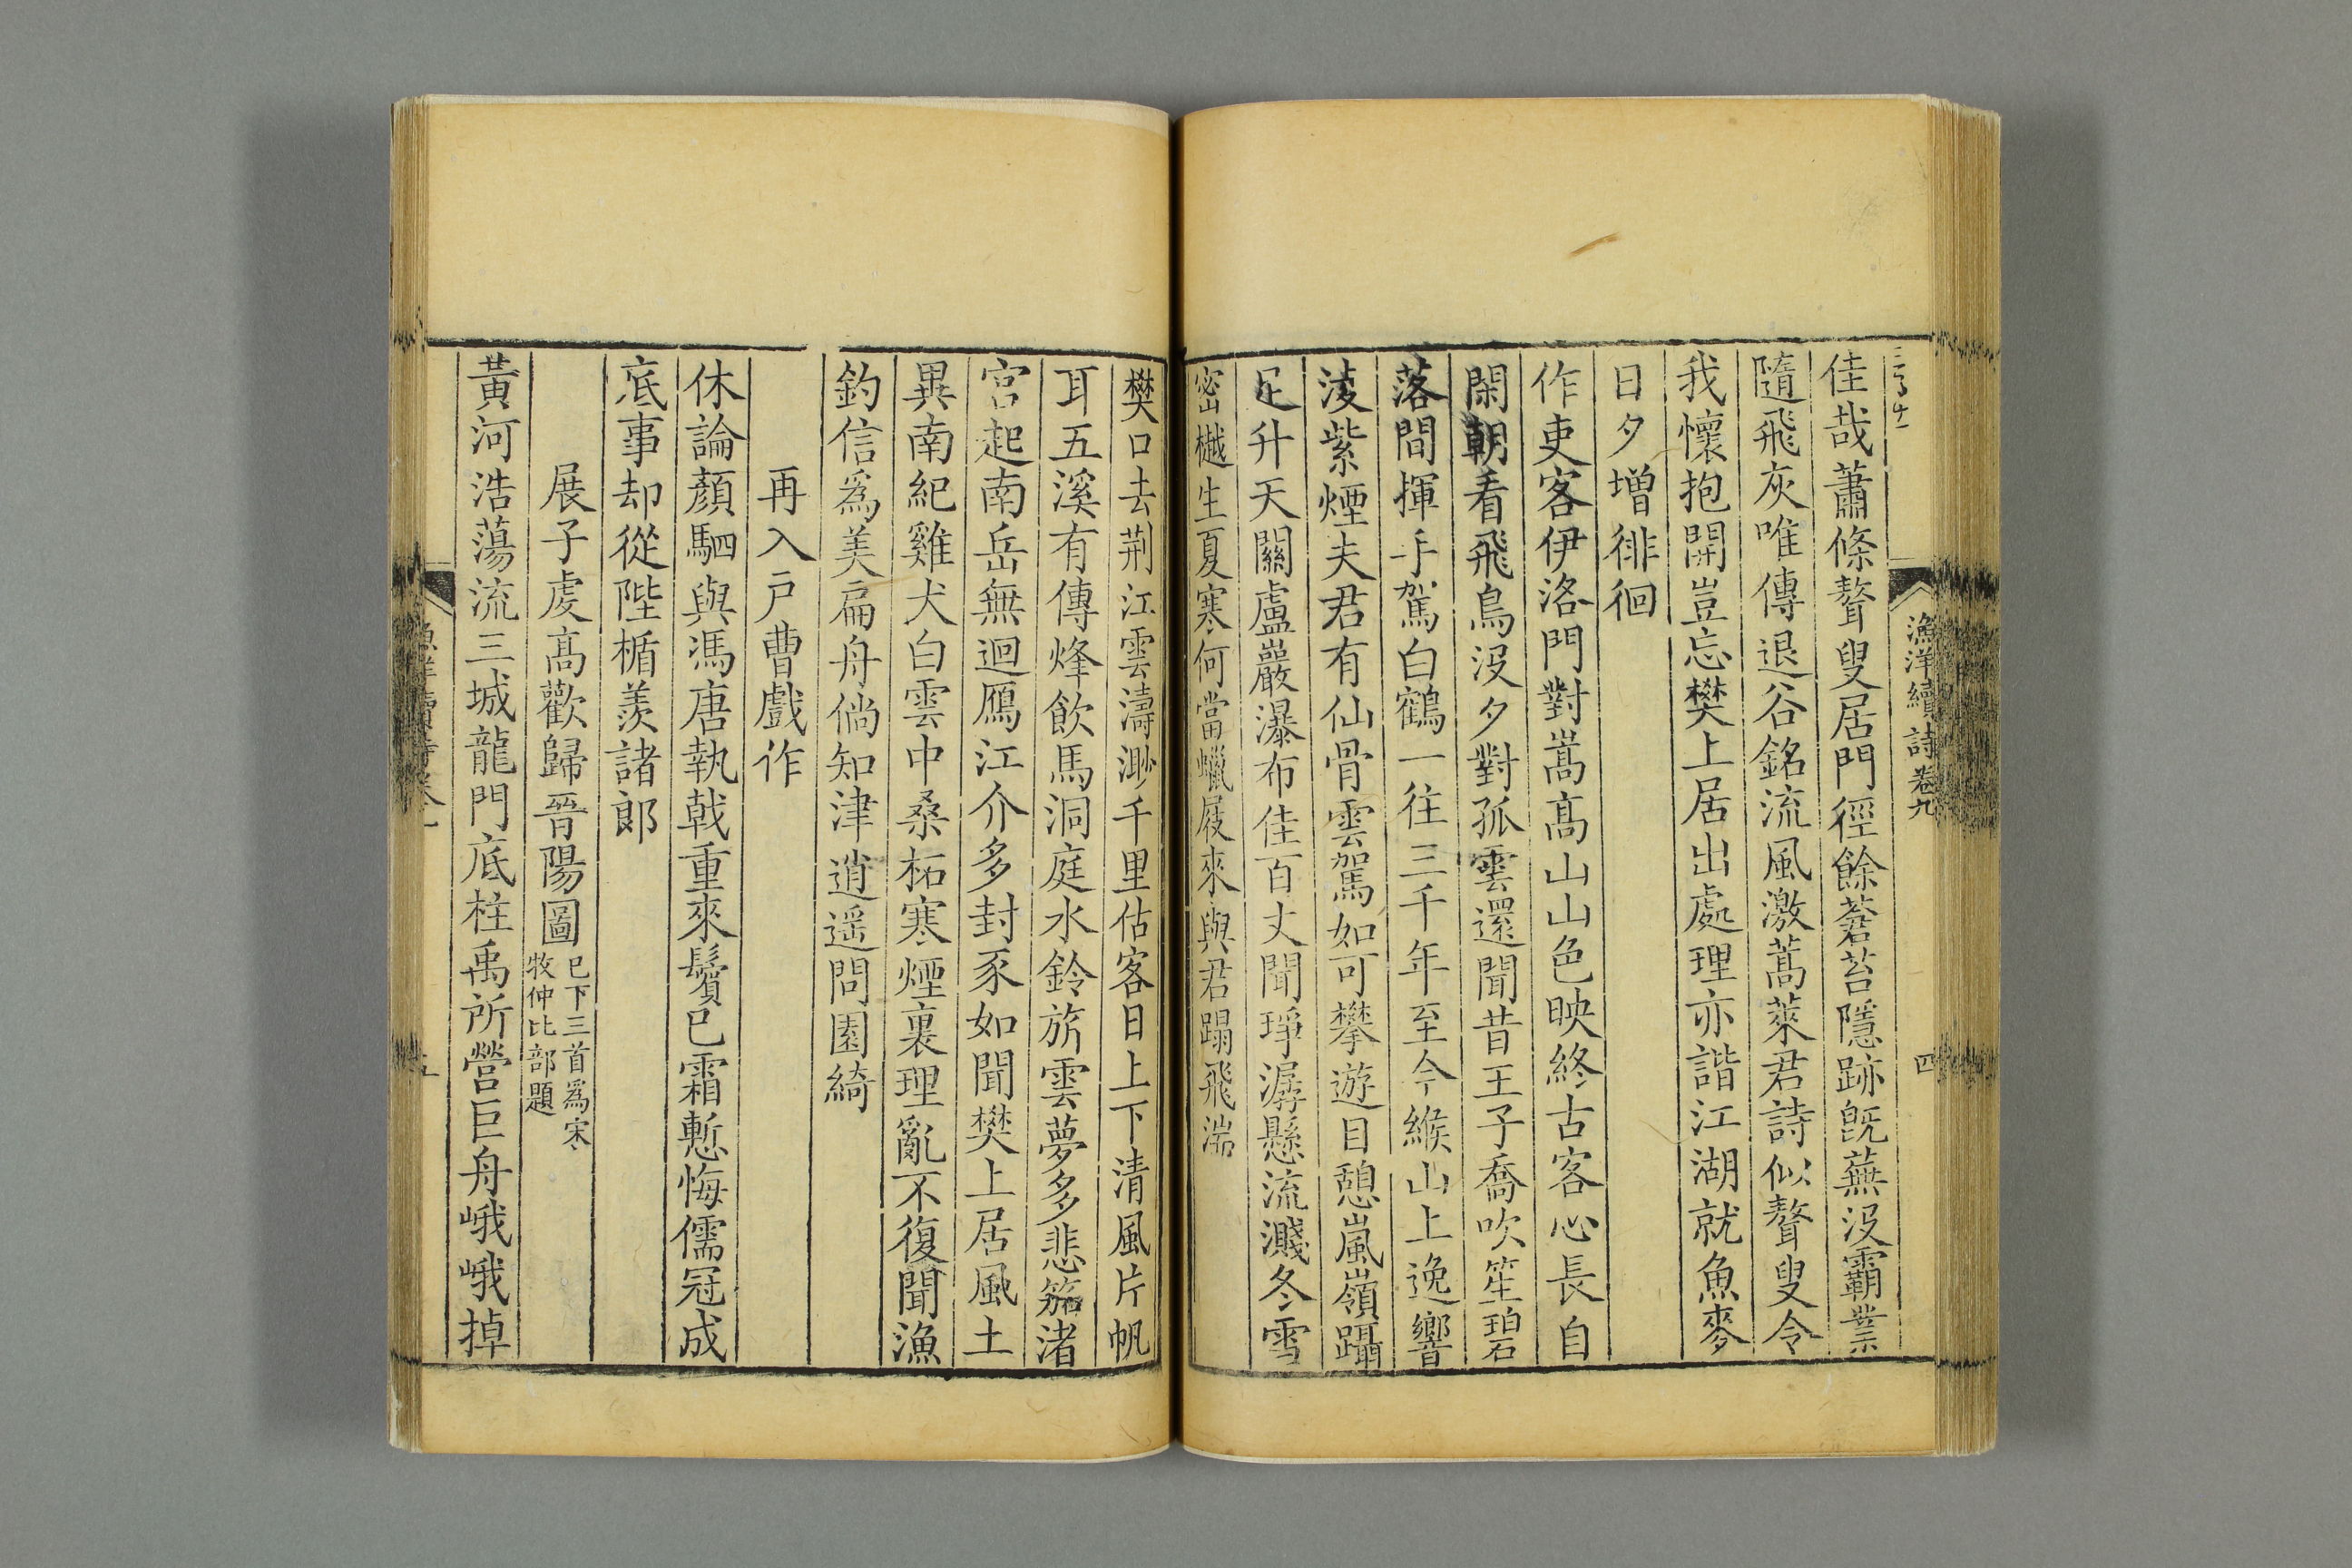 漁洋續詩卷九
四
佳哉蕭條聱叟居門徑餘蒼苔隱跡旣蕪没霸業
隨飛灰唯傳退谷銘流風激蒿萊君詩似聱叟令
我懷抱開豈忘樊上居出處理亦諧江湖就魚麥
日夕增徘徊
作吏客伊洛門對嵩高山山色映終古客心長自
閑朝看飛鳥没夕對孤雲還聞昔王子喬吹笙碧
落間揮手駕白鶴一往三千年至今緱山上逸響
淩紫煙夫君有仙骨雲駕如可攀遊目憩嵐嶺躡
足升天關盧巖瀑布佳百丈聞琤潺懸流濺冬雪
密樾生夏寒何當蠟屐來與君蹋飛湍
樊口去荆江雲濤渺千里估客日上下清風片帆
耳五溪有傳烽飲馬洞庭水鈴旂雲夢多悲笳渚
宫起南岳無迴鴈江介多封豕如聞樊上居風土
異南紀雞犬白雲中桑柘寒煙裏理亂不復聞漁
釣信爲美扁舟倘知津逍遥問園綺
再入戶曹戲作
休論顏駟與馮唐執戟重來鬢已霜慙悔儒冠成
底事却從陛楯羨諸郎
展子虔高歡歸晉陽圖已下三首爲宋
牧仲比部題
黃河浩蕩流三城龍門底柱禹所營巨舟峨峨掉